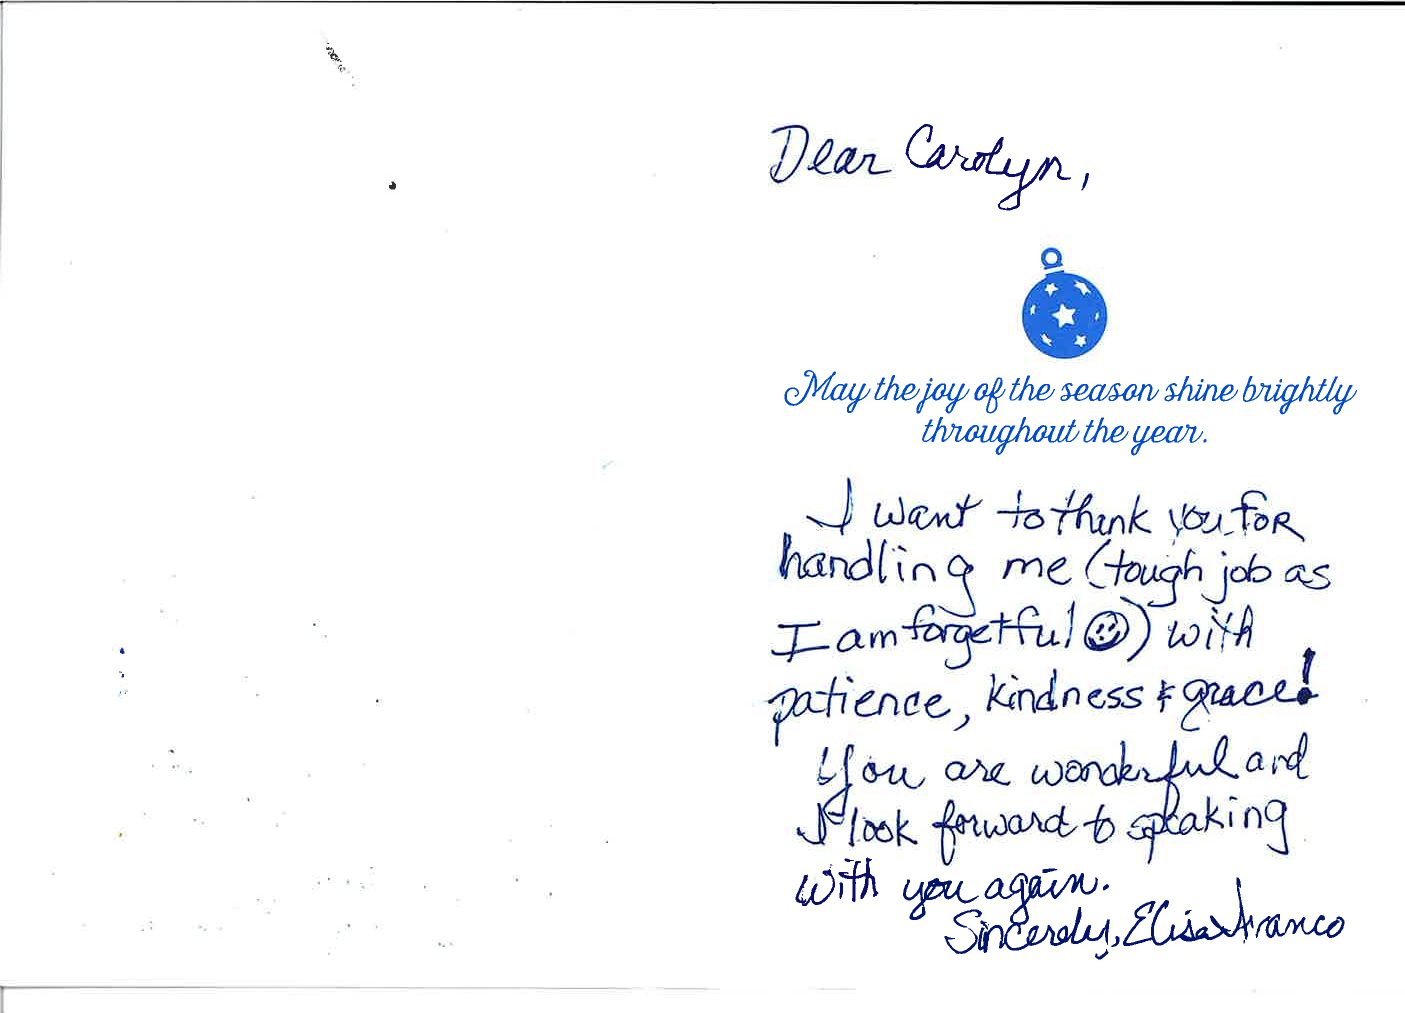 Dear Carolyn,
May the joy of the season shine brightly
throughout the year.
I want to thank you for
handling me (tough job as
I am forgetful ☺) with
patience, kindness & grace!
You are wonderful and
I look forward to speaking
with you again.
Sincerely, Elisa Franco